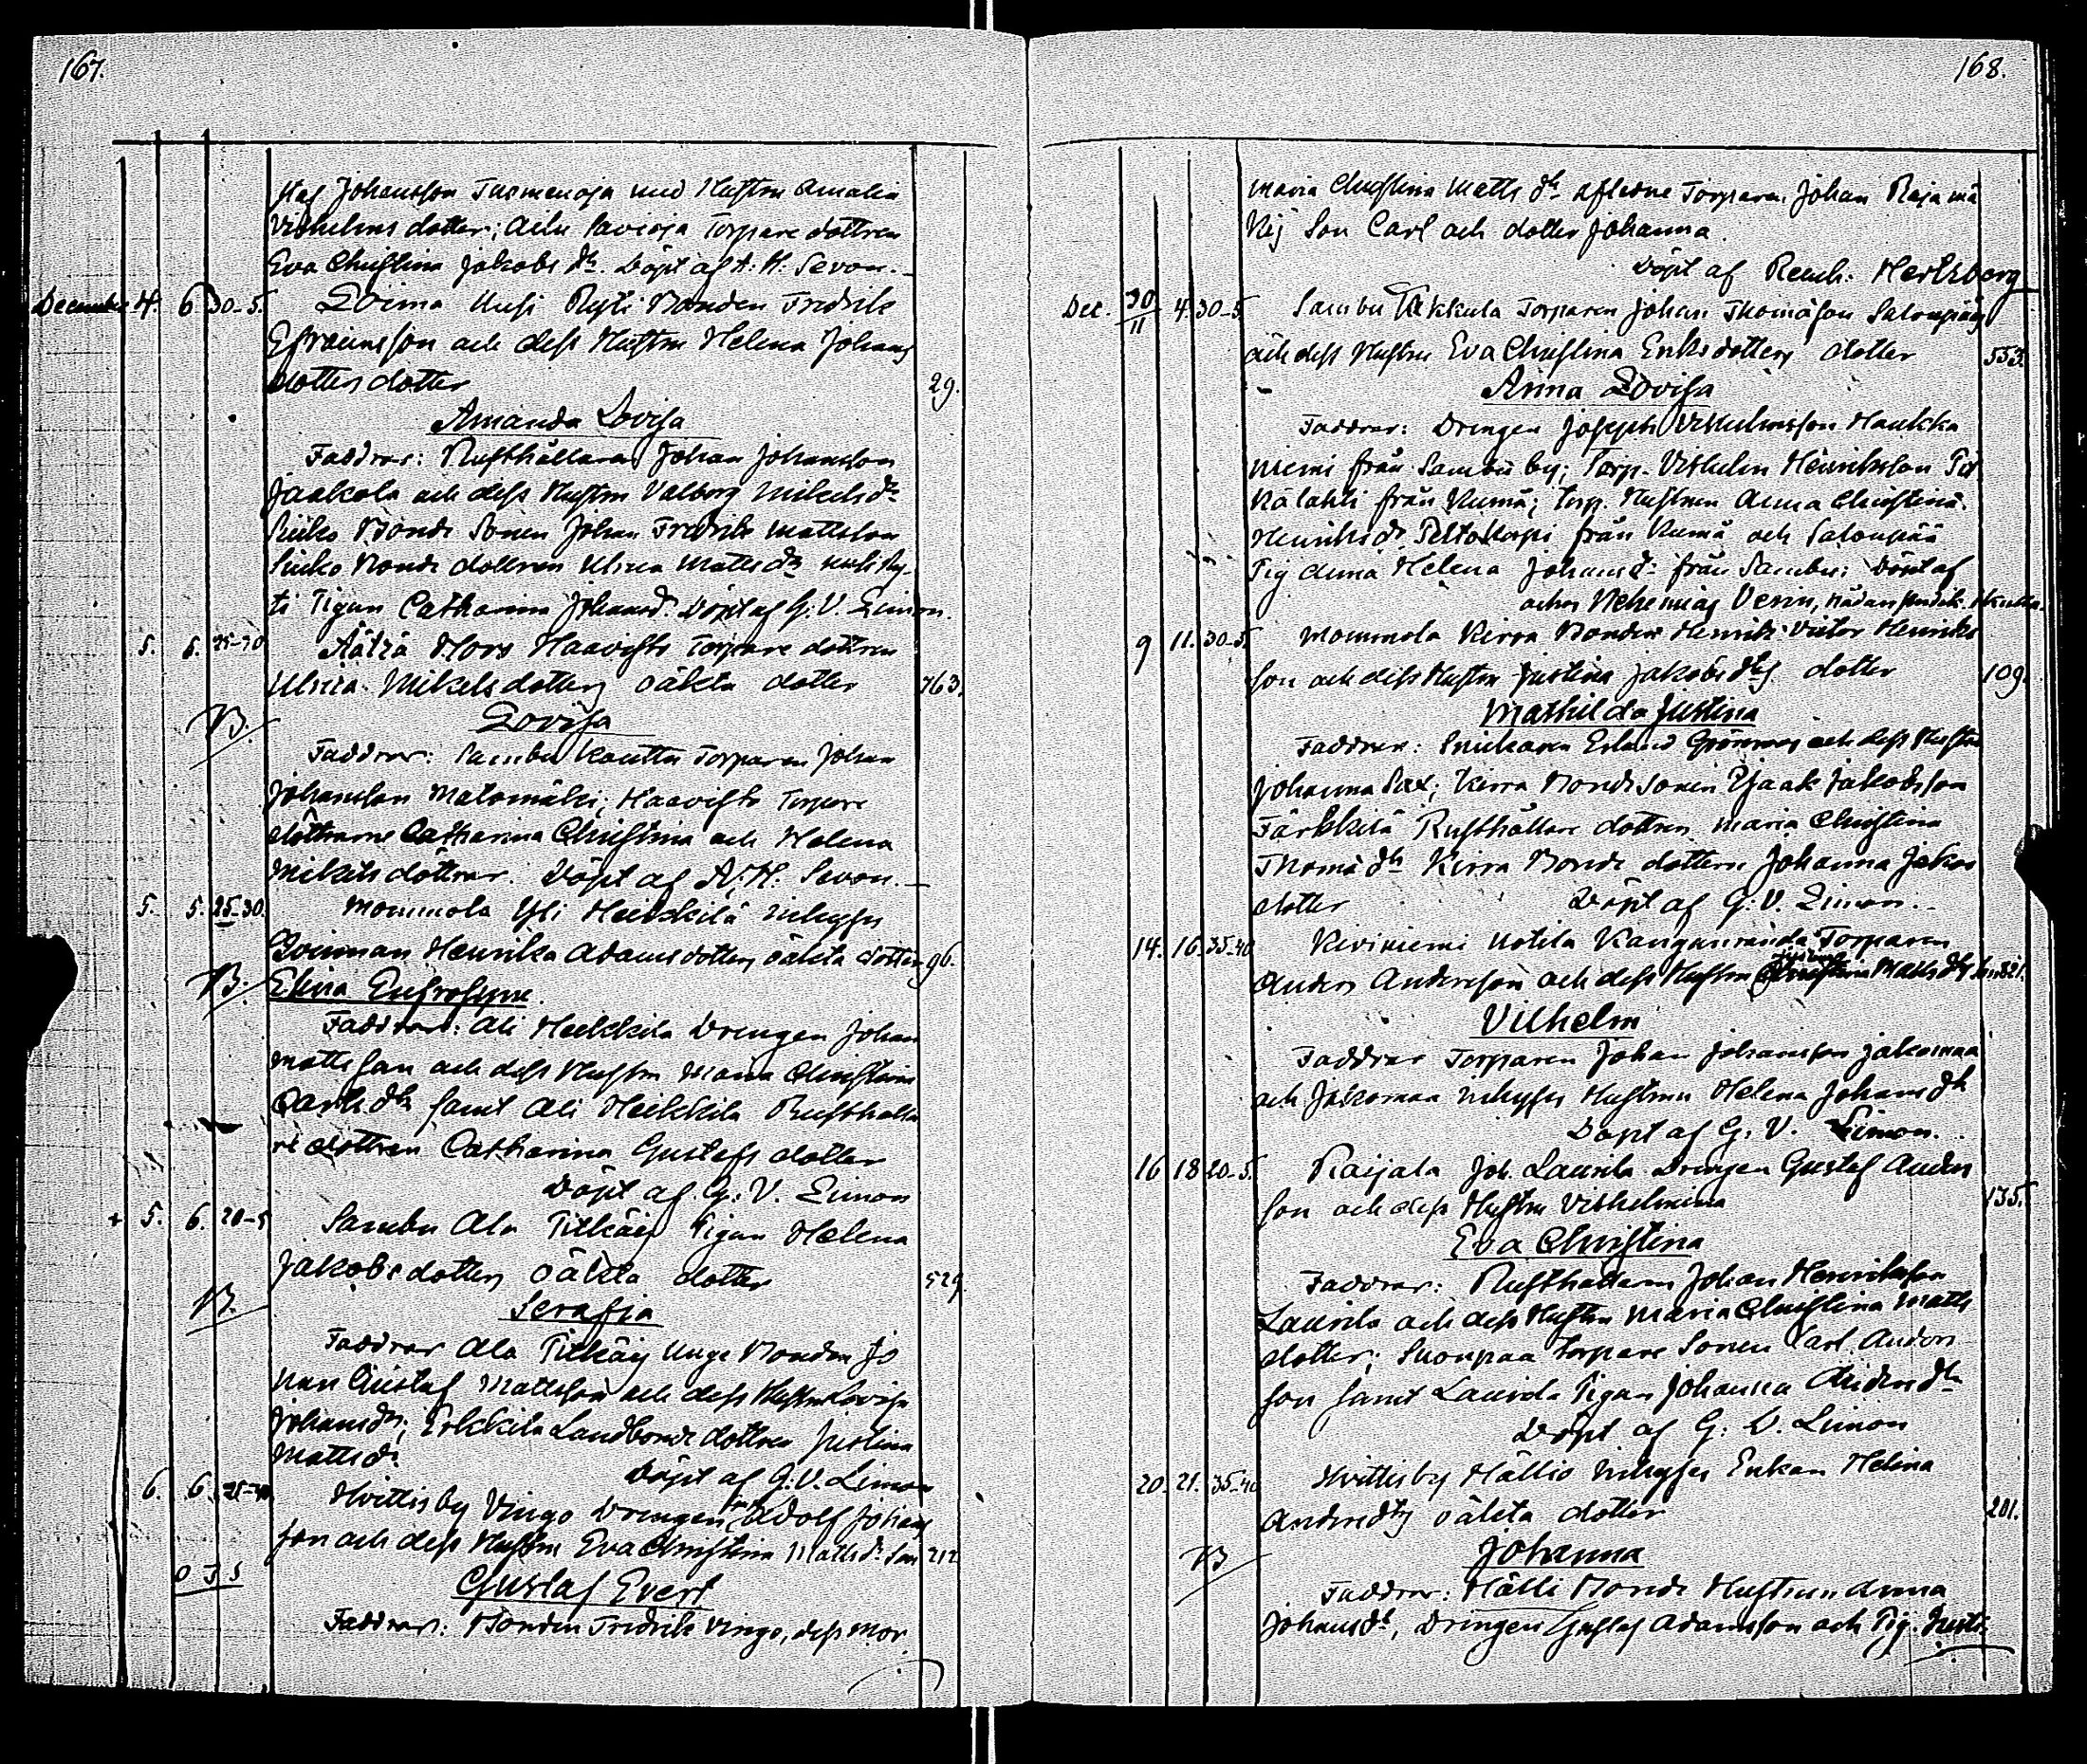 167.
Johansson Tuomenoja med Hustru Amalia
Vilhelms dotter; Torpare dottren
Eva Christina Jakobs dr. Döpt af A. H. Sevon.
December 4. 6 30-5. Loima Uusi Ryti Bonden Fredrik
Efraimsson och dess Hustru Helena Johans
dotters dotter 29.
Amanda Lovisa
Faddrar: Rusthållaren Johan Johansson
Jaakola och dess Hustru Valborg Mikels dr
Bonde Sonen Johan Fredrik Mattsson
Bonde dottren Ulrica Matts dr
ti Pigan Catharina Johansd. Döpt af G. V. Limon.
5. 6. 25-30 Torpare dottren
Ulrica Mikelsdotters oäkta dotter 763.
B. Lovisa
Faddrar: Sambu Kouttu Torparen Johan
Johansson Matomäki; Haavisto Torpare
döttrarne Catharina Christina och Helena
Mikelsdöttrar. Döpt af A. H. Sevon.
5. 5. 25-30. Mommola Yli Heikkilä Inhyses
Qvinnan Henrika Adamsdotters oäkta dotter 96.
B. Elina Eufrosyne.
Faddrar: Ali Heikkila Drengen Johan
Mattsson och dess Hustru Maria Christina
Carls dr samt Ali Heikkila Rusthålla
re dottren Catharina Gustafs dotter
Döpt af G. V. Limon
+ 5. 6. 20-5 Sambu Ala Pitkäis Pigan Helena
Jakobsdotters oäkta dotter 529.
B. Serafia
Faddrar Ala Pitkäis Unge Bonden Jo
han Gustaf Mattsson och dess Hustru Lovisa
Johansdr; Erkkila Landbonde dottren Justina
Mattsdr Döpt af G. V. Limon
6. 6. Hvittis by Vingo Drengen Adolf Johans
son och dess Hustru Eva Christina Mattsdr Son 212
Gustaf Evert
Faddrar: Bonden Fredrik Vingo, dess mor
168.
Maria Christina Matts dr aflidne Torparen Johan Rajamä
Son Carl och dotter Johanna.
Döpt af Hertzberg
Dec. 30/11 4 30-5 Sambu Takkula Torparen Johan Thomasson Salonpää
och dess Hustru Eva Christina Eriksdotters dotter 553.
Anna Lovisa
Faddrar: Drengen Joseph Vilhelmsson Haukka
niemi från Sambu by; Torp. Vilhelm Henriksson Pit
kälahti från Kumä; Torp. Hustrun Anna Christina
Henriksdr Peltokorpi från Kumä och Salonpää
Pig Anna Helena Johansd: från Sambu; Döpt af
Nehemias Venn,
9 11. 30-5. Mommola Kirra Bonden Henrik Victor Henriks
son och dess Hustru Justina Jakobsdrs dotter 109.
Mathilda Justina
Faddrar: Snickaren Erland Grönroos och dess Hustru
Johanna Sax; Kirra Bondesonen Isaak Jakobsson
Färkkilä Rusthållare dottren Maria Christina
Thomä dr Kirra Bonde dottern Johanna Jakobs
dotter Döpt af G. V. Limon.
14. 16. 35-40 Kiviniemi Uotila Torparen
Anders Andersson och dess Hustru Justina Matts drs son 321.
Vilhelm
Faddrar Torparen Johan Johansson Jakomaa
och Jakomaa Inhyses Hustrun Helena Johans dr
Döpt af G. V. Limon.
16 18 20-5. Raijala Joh. Laurila Drengen Gustaf Anders
son och dess Hustru Vilhelmina 135.
Eva Christina
Faddrar: Rusthållaren Johan Henriksson
Laurila och dess Hustru Maria Christina Matts
dotter; Suonpaa Torpare Sonen Carl Anders
son samt Laurila Pigan Johanna Anders dr
Döpt af G. V. Limon
20. 21. 35-40 Hvittisby Hällio Inhyses Enkan Helina
Andersdrs oäkta dotter 201.
B Johanna
Faddrar: Hälli Bonde Hustrun Anna
Johansdr, Drengen Gustaf Adamsson och Pig. Justi-